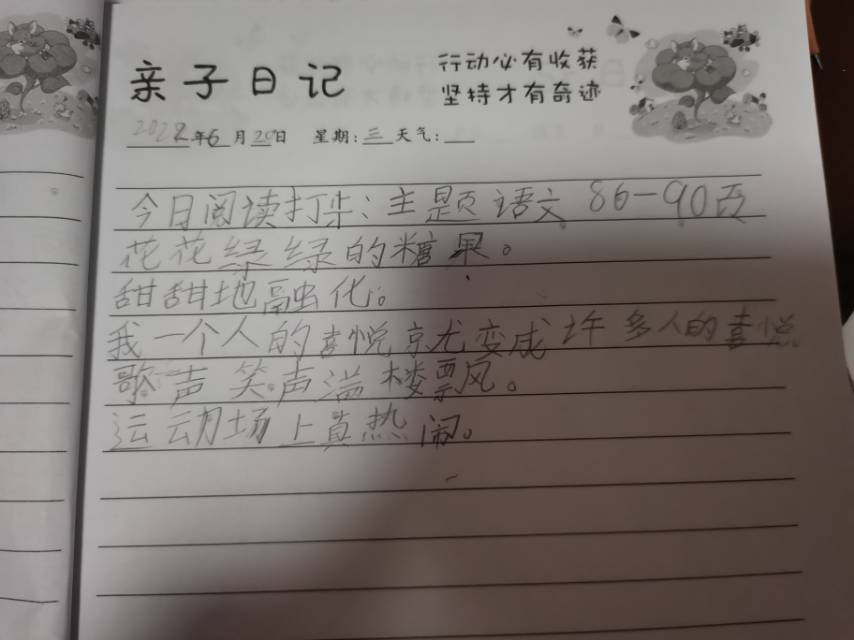 亲子日记
行动必有收获
坚持才有奇迹
2022年6月20日 星期:三 天气:
今日阅读打卡:主题语文86-90页
花花绿绿的糖果。
甜甜地融化。
我一个人的喜悦就变成许多人的喜悦
歌声笑声溢楼飘风。
运动场上真热闹。